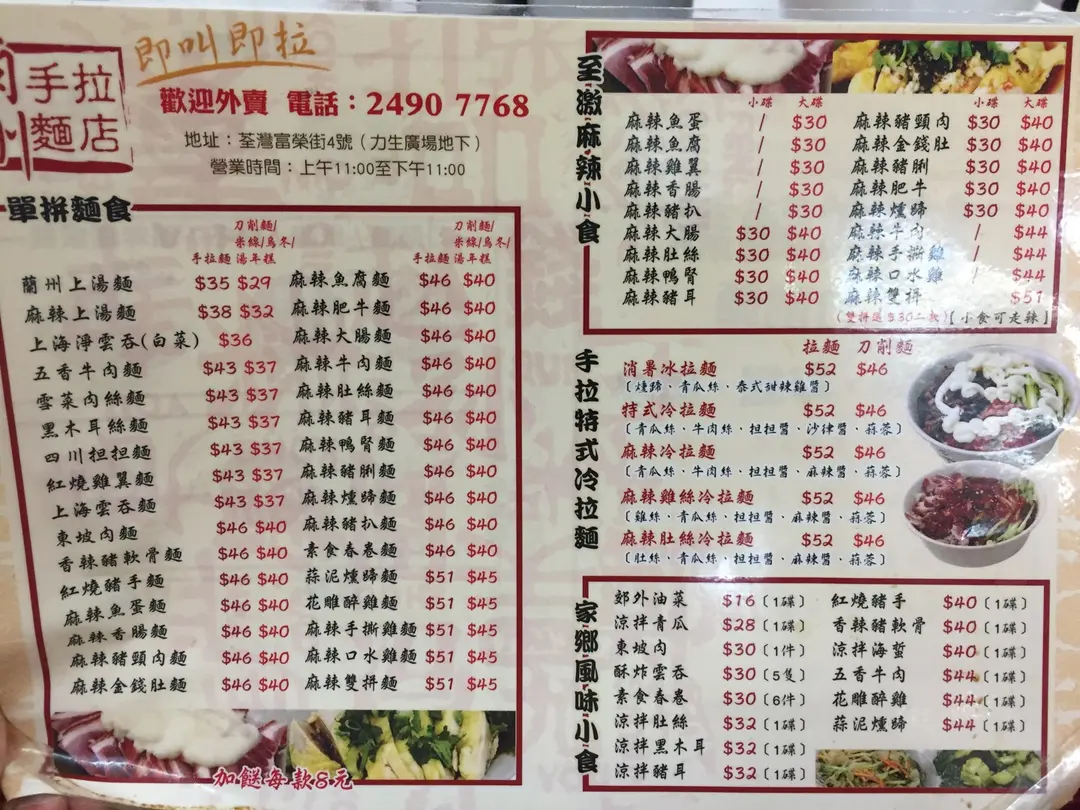 手拉
麵店
即叫即拉
歡迎外賣 電話：2490 7768
地址：荃灣富榮街4號（力生廣場地下）
營業時間：上午11:00至下午11:00
單拼麵食
手拉麵 刀削麵/米線/烏冬/湯年糕
蘭州上湯麵 $35 $29
麻辣上湯麵 $38 $32
上海淨雲吞(白菜) $36
五香牛肉麵 $43 $37
雪菜肉絲麵 $43 $37
黑木耳絲麵 $43 $37
四川担担麵 $43 $37
紅燒雞翼麵 $43 $37
上海雲吞麵 $43 $37
東坡肉麵 $46 $40
香辣豬軟骨麵 $46 $40
紅燒豬手麵 $46 $40
麻辣魚蛋麵 $46 $40
麻辣香腸麵 $46 $40
麻辣豬頸肉麵 $46 $40
麻辣金錢肚麵 $46 $40
手拉麵 刀削麵/米線/烏冬/湯年糕
麻辣魚腐麵 $46 $40
麻辣肥牛麵 $46 $40
麻辣大腸麵 $46 $40
麻辣牛肉麵 $46 $40
麻辣肚絲麵 $46 $40
麻辣豬耳麵 $46 $40
麻辣鴨腎麵 $46 $40
麻辣豬脷麵 $46 $40
麻辣燻蹄麵 $46 $40
麻辣豬扒麵 $46 $40
素食春卷麵 $46 $40
蒜泥燻蹄麵 $51 $45
花雕醉雞麵 $51 $45
麻辣手撕雞麵 $51 $45
麻辣口水雞麵 $51 $45
麻辣雙拼麵 $51 $45
加餸每款8元
至激麻辣小食
小碟 大碟
麻辣魚蛋 / $30
麻辣魚腐 / $30
麻辣雞翼 / $30
麻辣香腸 / $30
麻辣豬扒 / $30
麻辣大腸 $30 $40
麻辣肚絲 $30 $40
麻辣鴨腎 $30 $40
麻辣豬耳 $30 $40
小碟 大碟
麻辣豬頸肉 $30 $40
麻辣金錢肚 $30 $40
麻辣豬脷 $30 $40
麻辣肥牛 $30 $40
麻辣燻蹄 $30 $40
麻辣牛肉 / $44
麻辣手撕雞 / $44
麻辣口水雞 / $44
麻辣雙拼 $51
[小食可走辣]
手拉特式冷拉麵
拉麵 刀削麵
消暑冰拉麵 $52 $46
〔燻蹄、青瓜絲、泰式甜辣雞醬〕
特式冷拉麵 $52 $46
〔青瓜絲、牛肉絲、担担醬、沙律醬、蒜蓉〕
麻辣冷拉麵 $52 $46
〔青瓜絲、牛肉絲、担担醬、麻辣醬、蒜蓉〕
麻辣雞絲冷拉麵 $52 $46
〔雞絲、青瓜絲、担担醬、麻辣醬、蒜蓉〕
麻辣肚絲冷拉麵 $52 $46
〔肚絲、青瓜絲、担担醬、麻辣醬、蒜蓉〕
家鄉風味小食
郊外油菜 $16〔1碟〕
涼拌青瓜 $28〔1碟〕
東坡肉 $30〔1件〕
酥炸雲吞 $30〔5隻〕
素食春卷 $30〔6件〕
涼拌肚絲 $32〔1碟〕
涼拌黑木耳 $32〔1碟〕
涼拌豬耳 $32〔1碟〕
紅燒豬手 $40〔1碟〕
香辣豬軟骨 $40〔1碟〕
涼拌海蜇 $40〔1碟〕
五香牛肉 $44〔1碟〕
花雕醉雞 $44〔1碟〕
蒜泥燻蹄 $44〔1碟〕